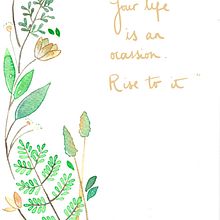 Your life
is an
ocassion.
Rise to it "